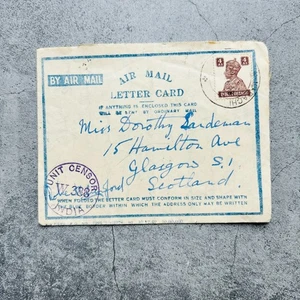 AIR MAIL
BY AIR MAIL
LETTER CARD
IF ANYTHING IS ENCLOSED THIS CARD
WILL BE SENT BY ORDINARY MAIL
Miss Dorothy Sardeman
15 Hamilton Ave
Glasgow S.1
Scotland.
UNIT CENSOR
INDIA
WHEN FOLDED THE LETTER CARD MUST CONFORM IN SIZE AND SHAPE WITH
THE BLUE BORDER WITHIN WHICH THE ADDRESS ONLY MAY BE WRITTEN